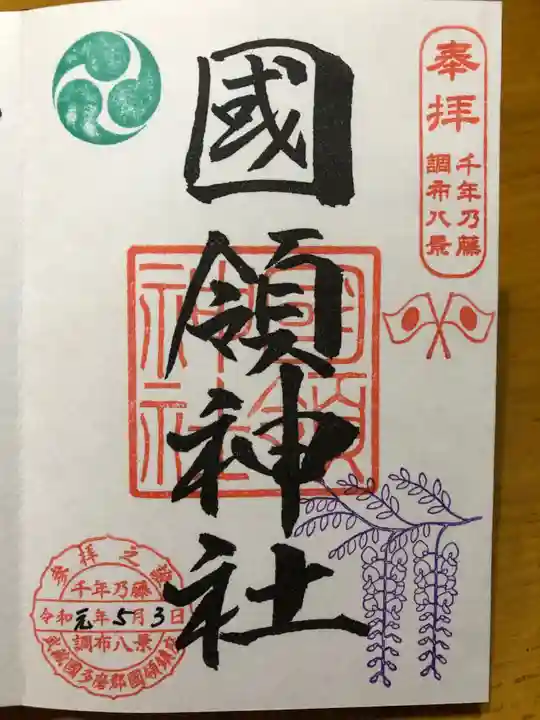 奉拝
千年乃藤
調布八景
國領神社
國領
神社
参拝之證
千年乃藤
令和元年5月3日
調布八景
武蔵國多磨郡國領鎮座